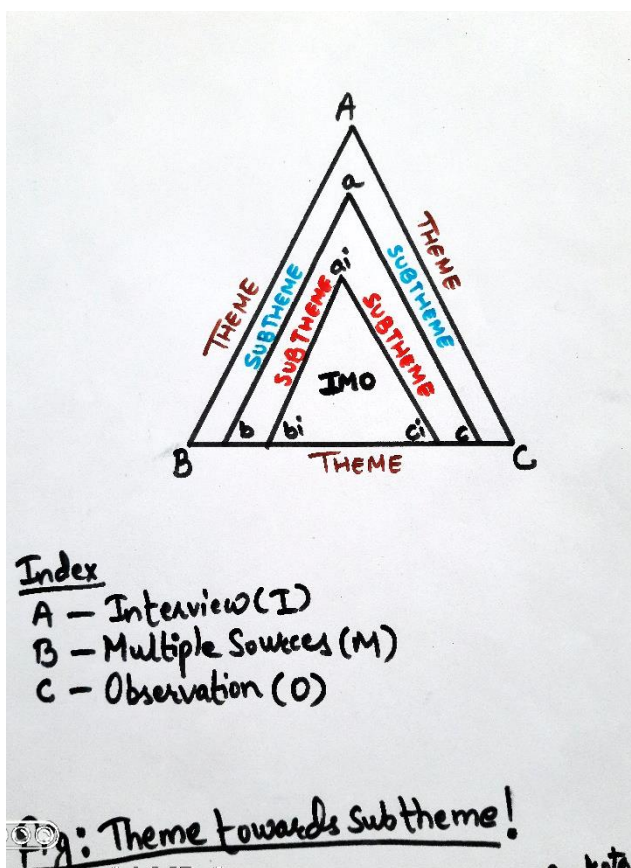 A
a
ai
THEME
SUBTHEME
SUBTHEME
SUBTHEME
SUBTHEME
THEME
IMO
b
bi
ci
c
B
THEME
C
Index
A – Interview (I)
B – Multiple Sources (M)
C – Observation (O)
Fig: Theme towards subtheme!